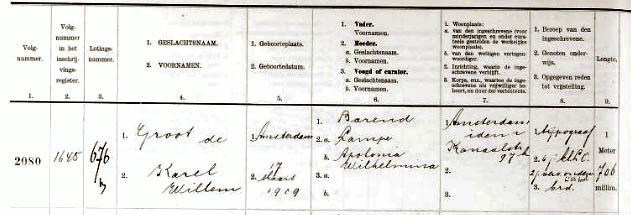 Volg-
nummer.
Volg-
nummer
in het
inschrij-
vings-
register.
Lotings-
nummer.
1. GESLACHTSNAAM.
2. VOORNAMEN.
1. Geboorteplaats.
2. Geboortedatum.
1. Vader.
Voornamen.
2. Moeder.
a. Geslachtsnaam.
b. Voornamen.
3. Voogd of curator.
a. Geslachtsnaam.
b. Voornamen.
1. Woonplaats:
a. van den ingeschrevene (voor
minderjarigen en onder cura-
teele gestelden de werkelijke
woonplaats).
b. van den wettigen vertegen-
woordiger.
2. Inrichting, waarin de inge-
schrevene verblijft.
3. Korps, enz., waartoe de inge-
schrevene als vrijwilliger be-
hoort, en duur der verbintenis.
1. Beroep van den
ingeschrevene.
2. Genoten onder-
wijs.
3. Opgegeven reden
tot vrijstelling.
Lengte.
1. 2. 3. 4. 5. 6. 7. 8. 9.
2080
1645
676
1. Groot de
2. Karel
Willem
1. Amsterdam
2. 17
Maart
1909
1. Barend
2. a. Lampe
b. Apolonia
Wilhelmina
3. a.
b.
1. Amsterdam
idem
Kanaalstr
97
2.
3.
1. typograaf
2. 6 j. kl. L.O.
3. brd.
1
Meter
706
millim.